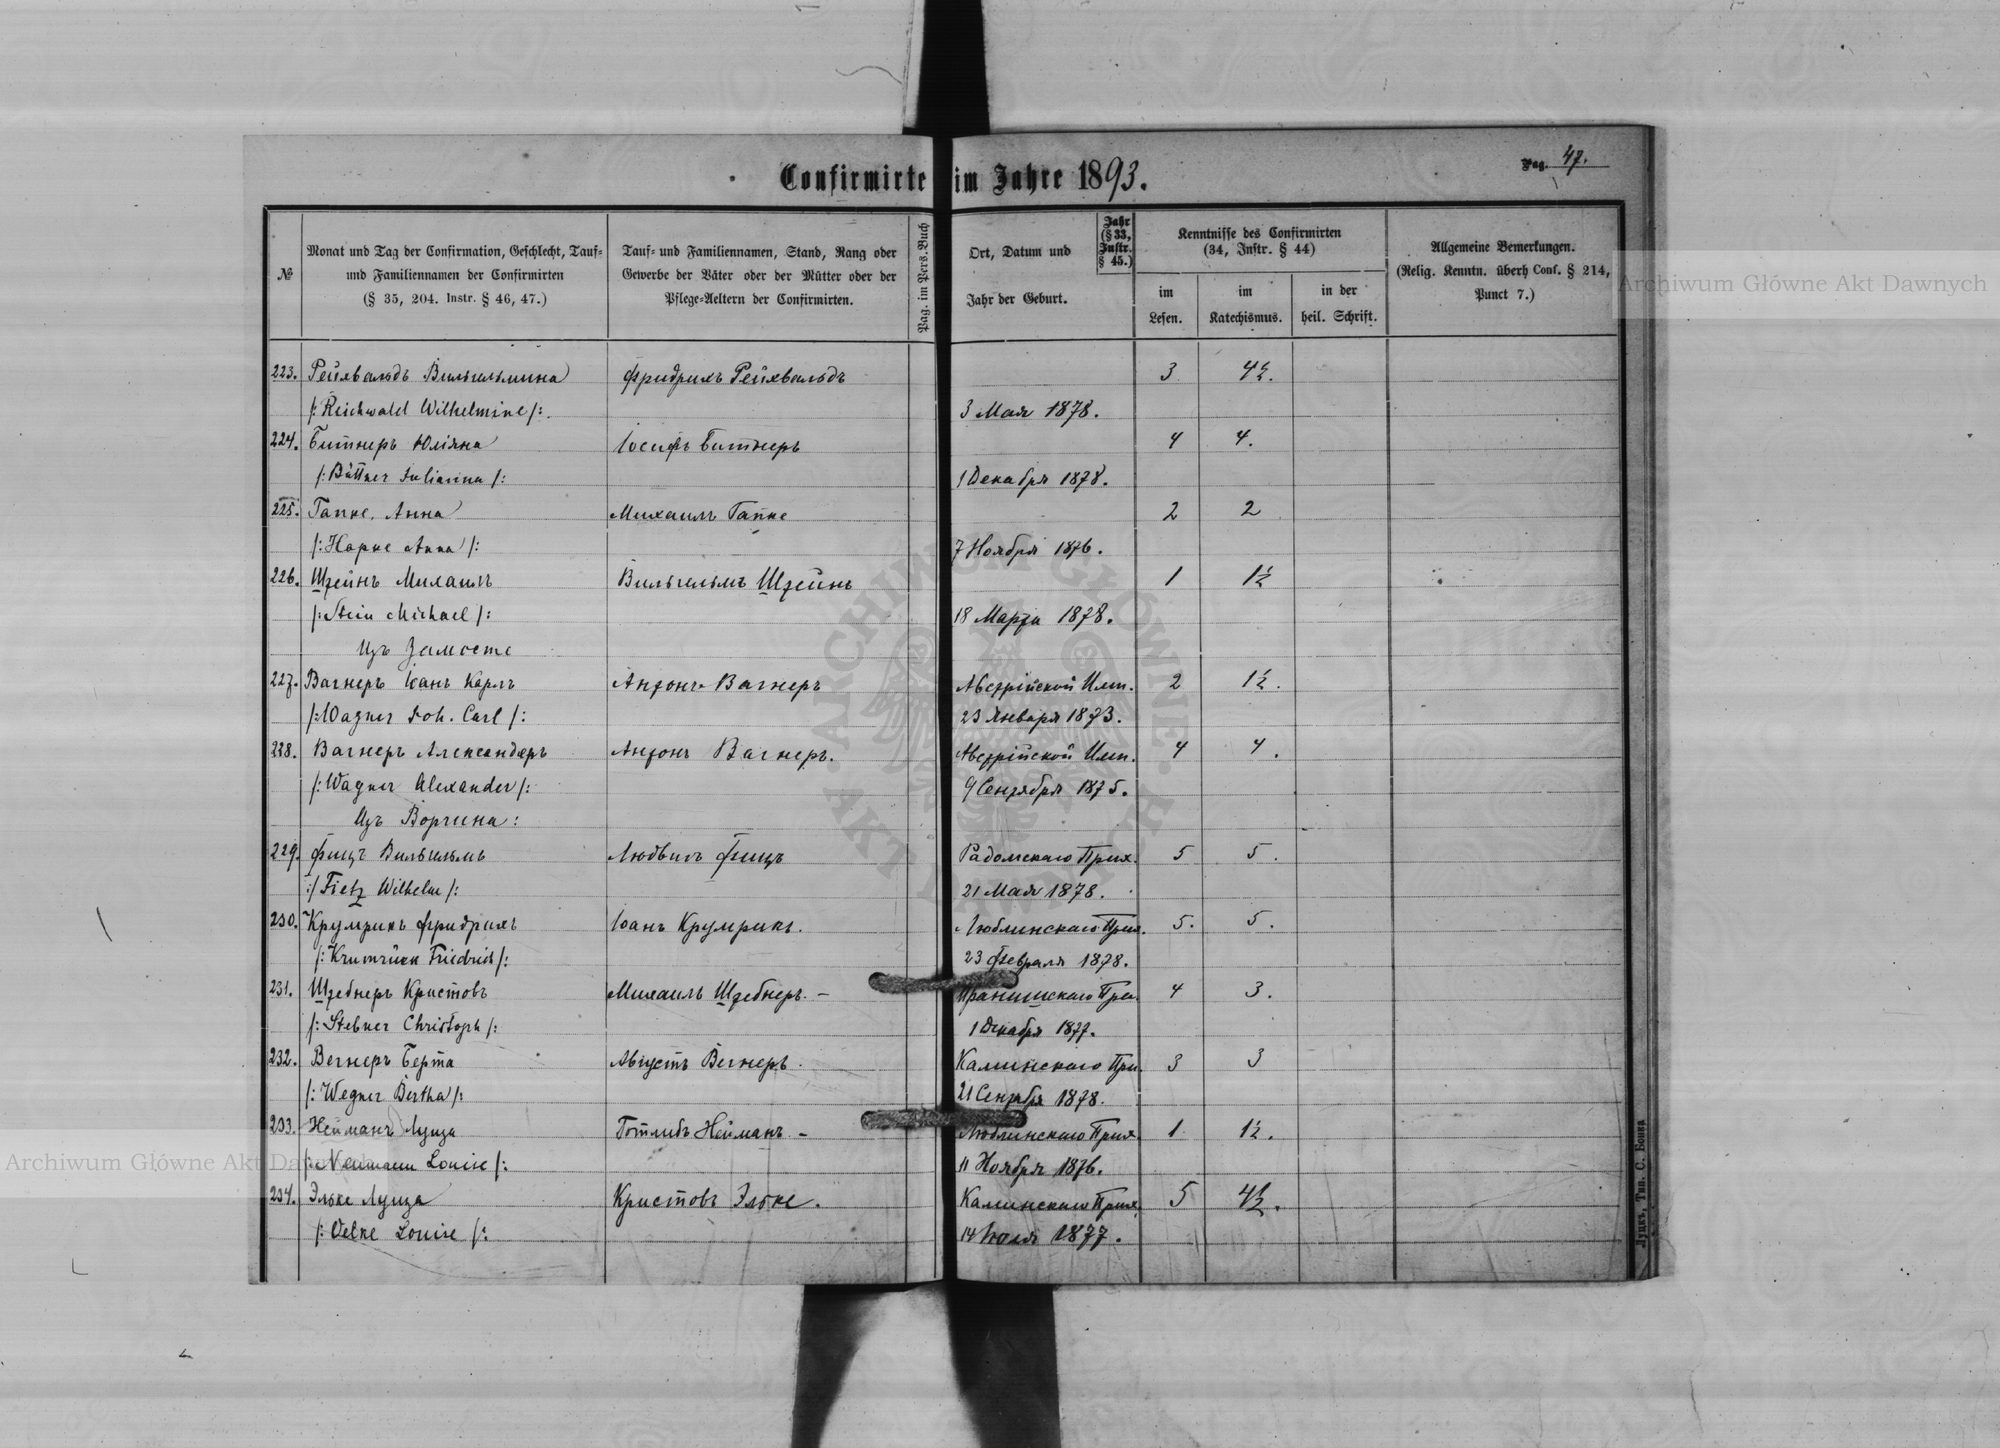 Confirmirte im Jahre 1893.
Pag. 47.
№
Monat und Tag der Confirmation, Geschlecht, Tauf-
und Familiennamen der Confirmirten
(§ 35, 204. Instr. § 46, 47.)
Tauf- und Familiennamen, Stand, Rang oder
Gewerbe der Väter oder der Mütter oder der
Pflege-Aeltern der Confirmirten.
Pag. im Pers.-Buch
Ort, Datum und
Jahr der Geburt.
Jahr
(§ 33,
Instr.
§ 45.)
Kenntnisse des Confirmirten
(34, Instr. § 44)
im
Lesen.
im
Katechismus.
in der
heil. Schrift.
Allgemeine Bemerkungen.
(Relig. Kenntn. überh Conf. § 214,
Punct 7.)
Archiwum Główne Akt Dawnych
223. Рейхвальдъ Вильгельмина Фридрихъ Рейхвальдъ 3 4½.
/: Reichwald Wilhelmine /: 3 Мая 1878.
224. Битнеръ Юліяна Іосифъ Битнеръ 4 4.
/: Büttner Julianna /: 1 Декабря 1878.
225. Гапке. Анна Михаилъ Гапке 2 2
/: Hapke Anna /: 7 Ноября 1876.
226. Штейнъ Михаилъ Вильгельмъ Штейнъ 1 1½
/: Stein Michael /: 18 Марта 1878.
Изъ Замосте
227. Вагнеръ Іоанъ Карлъ Антонъ Вагнеръ Австрійской Имп. 2 1½.
/: Wagner Joh. Carl /: 23 Января 1873.
228. Вагнеръ Александеръ Антонъ Вагнеръ. Австрійской Имп. 4 4.
/: Wagner Alexander /: 9 Сентября 1875.
Изъ Ворчина:
229. Фицъ Вильгельмъ Людвигъ Фицъ Радомскаго Прих. 5 5.
:/ Fietz Wilhelm /: 21 Мая 1878.
230. Крумрикъ Фридрихъ Іоанъ Крумрикъ. Люблинскаго Прих. 5. 5.
/: Krumrück Friedrich /: 23 Февраля 1878.
231. Штебнеръ Кристовъ Михаилъ Штебнеръ. – 4 3.
/: Stebner Christoph /: 1 Декабря 1877.
232. Вегнеръ Берта Августъ Вегнеръ. Калишскаго При. 3 3
/: Wegner Bertha /: 21 Сентября 1878.
233. Нейманъ Луиза Готлибъ Нейманъ – Люблинскаго Прих. 1 1½.
/: Neumann Louise /: 11 Ноября 1876.
234. Эльке Луиза Кристовъ Эльке. Калишскаго Прих. 5 4½.
/: Oelke Louise /: 14 Іюля 1877.
Archiwum Główne Akt Dawnych
ARCHIWUM GŁÓWNE AKT DAWNYCH
Луцкъ, Тип. С. Бонка